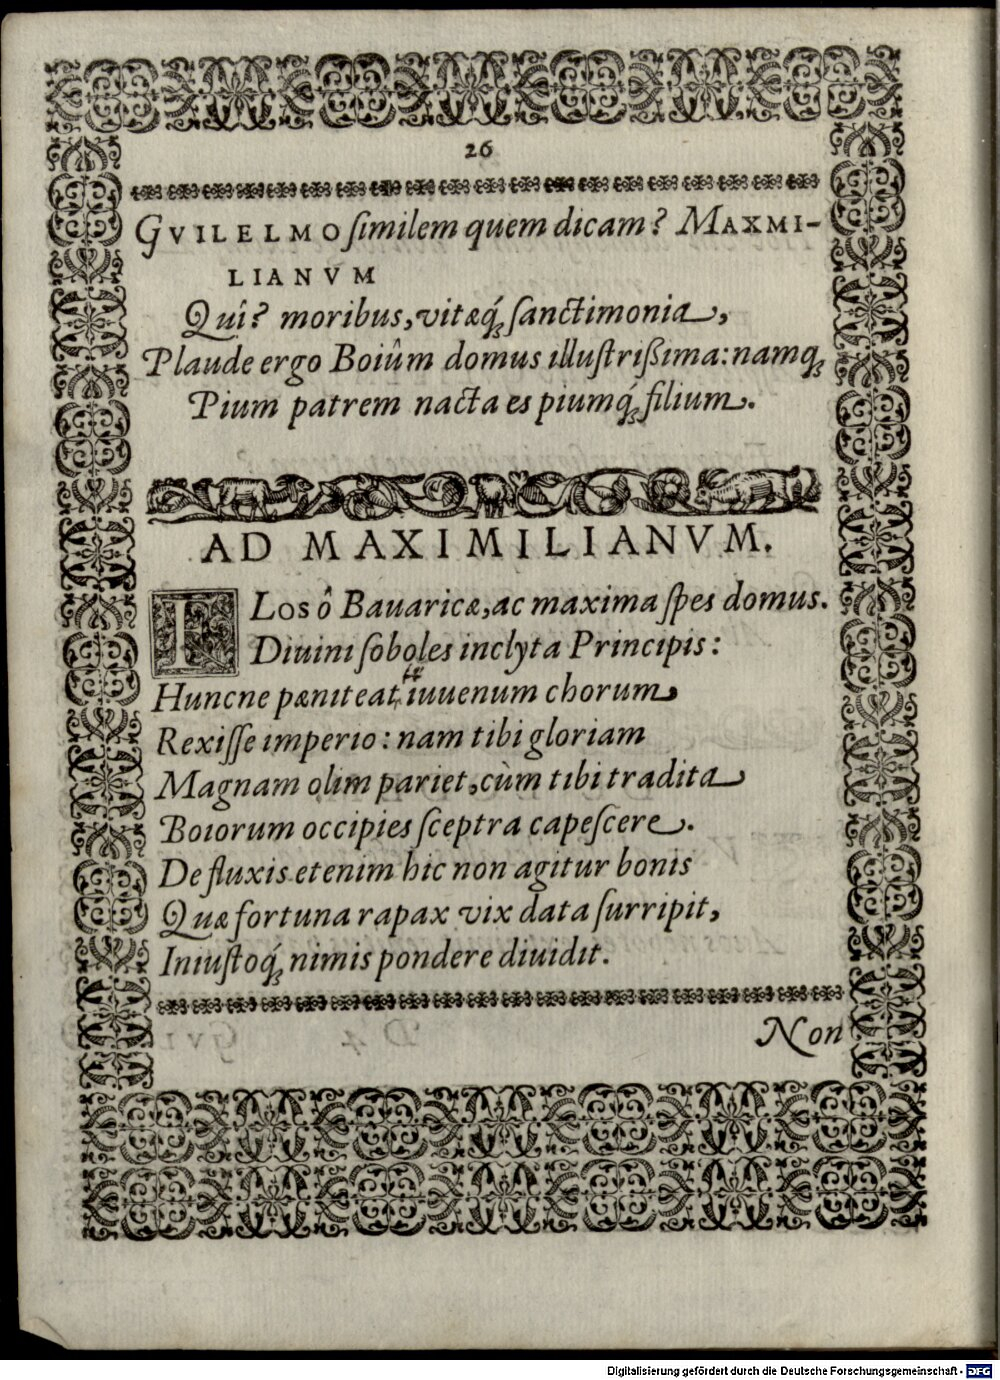 26
GVILELMO ſimilem quem dicam? MAXMI-
LIANVM
Quî? moribus, vitæq́; ſanctimonia,
Plaude ergo Boiûm domus illuſtriſsima: namq;
Pium patrem nacta es piumq́; filium.
AD MAXIMILIANVM.
FLOS ô Bauaricæ, ac maxima ſpes domus.
Diuini ſoboles inclyta Principis:
Huncne pæniteat iuuenum chorum
Rexiſſe imperio: nam tibi gloriam
Magnam olim pariet, cùm tibi tradita
Boiorum occipies ſceptra capeſcere.
De fluxis etenim hic non agitur bonis
Quæ fortuna rapax vix data ſurripit,
Iniuſtoq́; nimis pondere diuidit.
Non
Digitalisierung gefördert durch die Deutsche Forschungsgemeinschaft - DFG